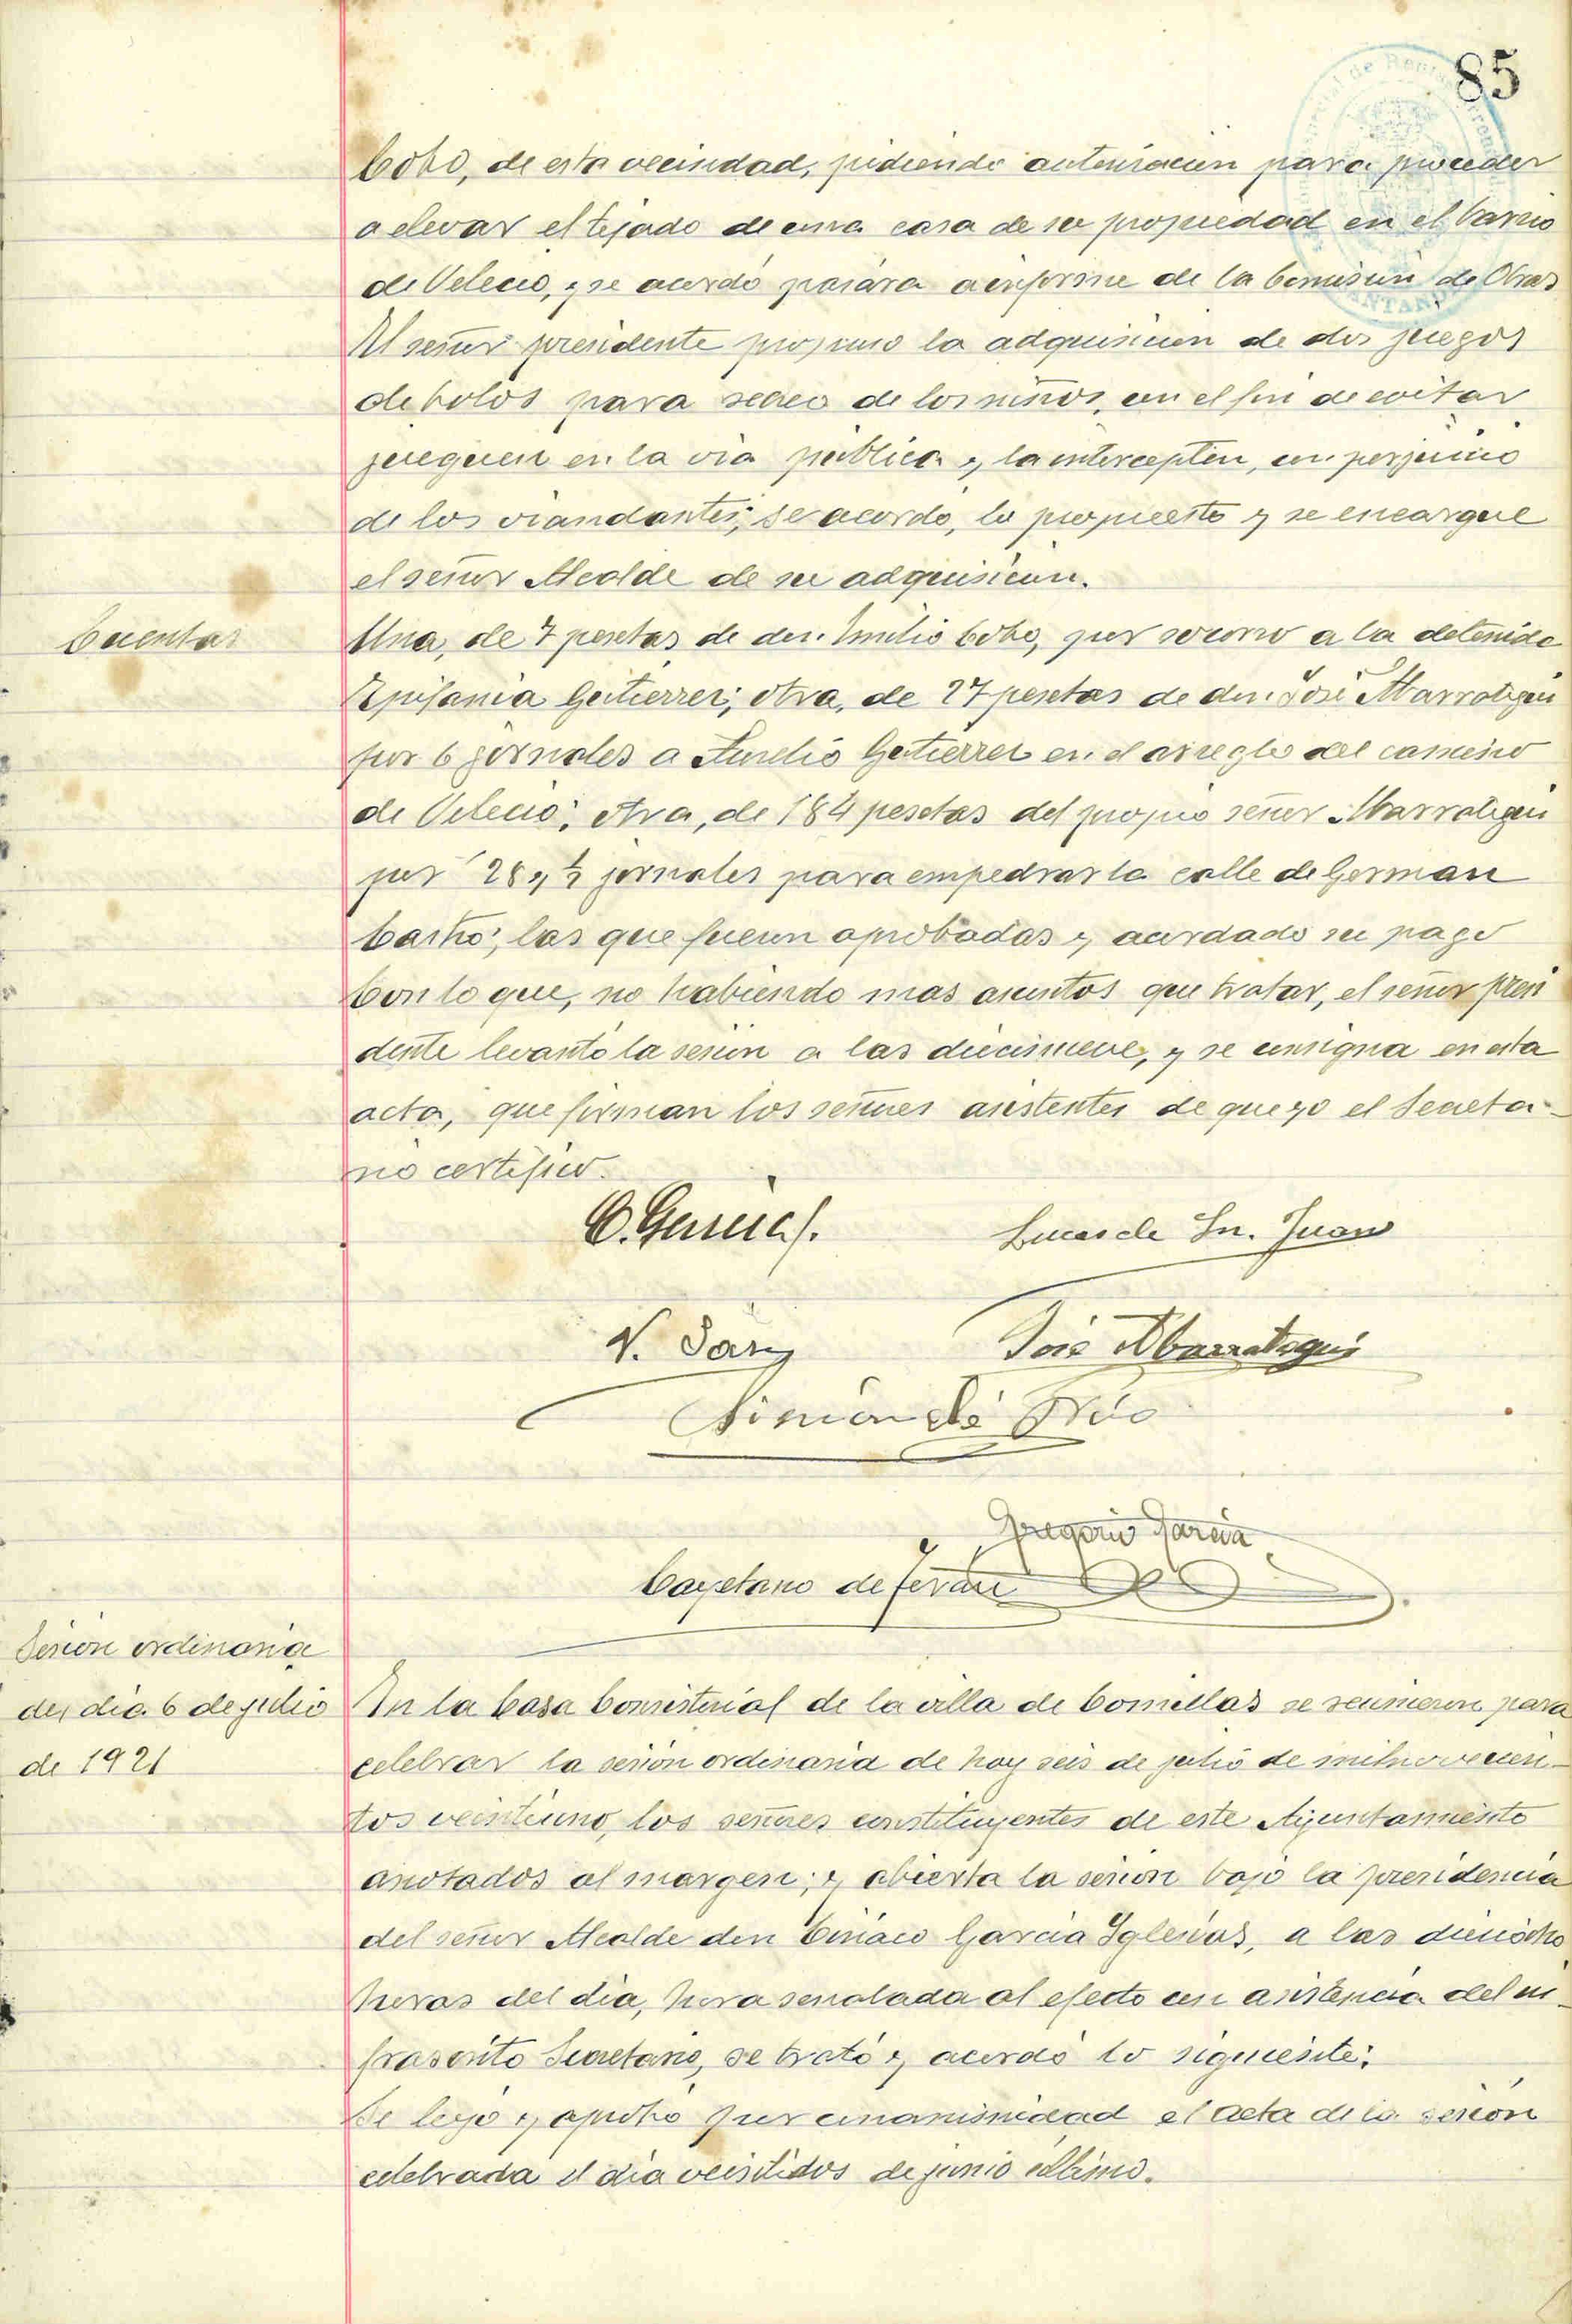 85
Cobo, de esta vecindad, pidiendo autorizacion para proceder
a elevar el tejado de una casa de su propiedad en el barrio
de Velecio, y se acordó pasára a informe de la Comision de Obras
El señor presidente propuso la adquisicion de dos juegos
de bolos para recreo de los niños, con el fin de evitar
jueguen en la via publica y la intercepten, con perjuicio
de los viandantes; se acordó, lo propuesto y se encargue
el señor Alcalde de su adquisicion.
Cuentas
Una, de 7 pesetas de don Emilio Cobo, por socorro a la detenida
Epifania Gutierrez; otra, de 27 pesetas de don José Abarrategui
por 6 jornales a Aurelio Gutierrez en el arreglo del camino
de Velecio; otra, de 184 pesetas del propio señor Abarrategui
por 28 y ½ jornales para empedrar la calle de German
Castro; las que fueron aprobadas y acordado su pago
Con lo que, no habiendo mas asuntos que tratar, el señor presi
dente levantó la sesion a las diecinueve, y se consigna en esta
acta, que firman los señores asistentes de que yo el Secreta-
rio certifico.
C. Garcia I.
Lucas de Sn. Juan
V. Saiz
José Abarrategui
Simón del Rio
Gregorio Garcia
Cayetano de Teran
Sesion ordinaria
del dia 6 de julio
de 1921
En la Casa Consistorial de la villa de Comillas se reunieron para
celebrar la sesión ordinaria de hoy seis de julio de mil novecien-
tos veintiuno, los señores constituyentes de este Ayuntamiento
anotados al margen; y abierta la sesion bajo la presidencia
del señor Alcalde don Ciriaco Garcia Iglesias, a las dieciocho
horas del dia, hora señalada al efecto con asistencia del in-
frascrito Secretario, se trató y acordó lo siguiente:
Se leyó y aprobó por unanimidad el acta de la sesión
celebrada el dia veintidos de junio ultimo.